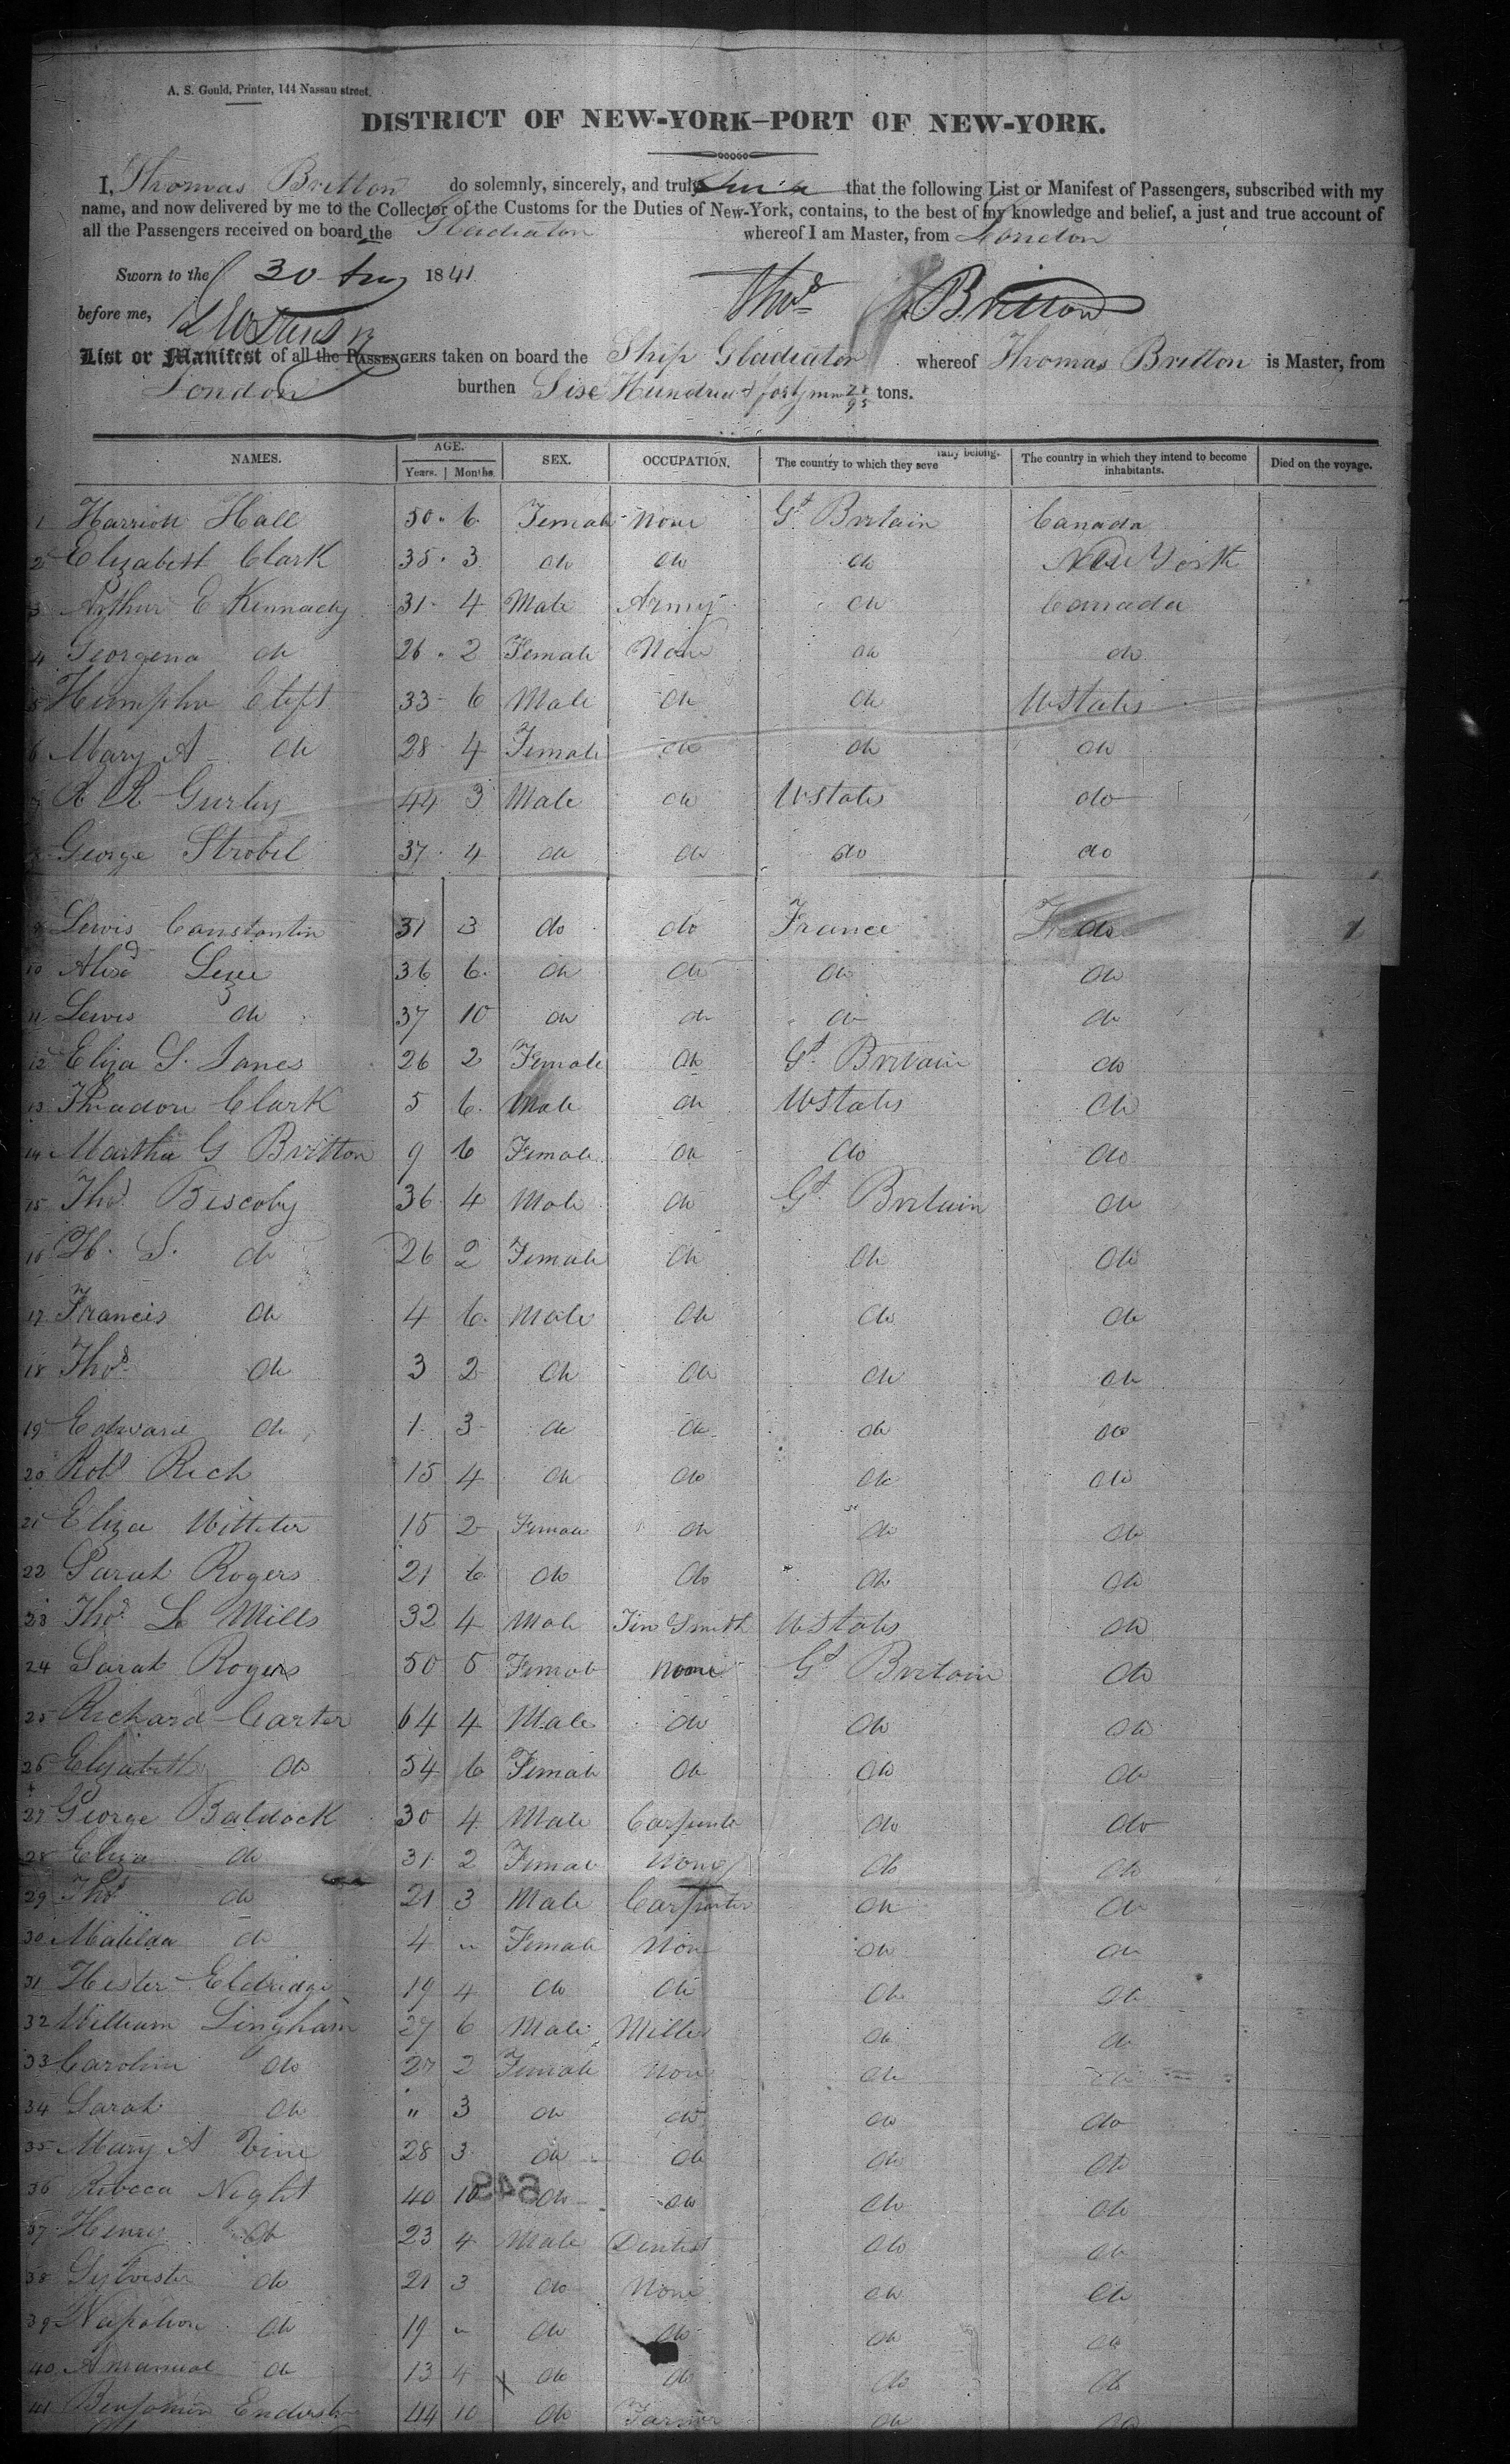 A. S. Gould, Printer, 144 Nassau street.
DISTRICT OF NEW-YORK–PORT OF NEW-YORK.
I, Thomas Britton do solemnly, sincerely, and truly that the following List or Manifest of Passengers, subscribed with my
name, and now delivered by me to the Collector of the Customs for the Duties of New-York, contains, to the best of my knowledge and belief, a just and true account of
all the Passengers received on board the Gladiator whereof I am Master, from London
Sworn to the 30 Aug 1841
Thos Britton
before me,
List or Manifest of all the PASSENGERS taken on board the Ship Gladiator whereof Thomas Britton is Master, from
London burthen Six Hundred forty nine 28/95 tons.
NAMES. AGE. SEX. OCCUPATION. The country to which they severally belong. The country in which they intend to become inhabitants. Died on the voyage.
Years. Months.
1 Harriott Hall 50 6 Female None Gt Britain Canada
2 Elizabeth Clark 35 3 do do do New York
3 Arthur E Kennady 31 4 Male Army do Canada
4 Georgena do 26 2 Female None do do
5 33 6 Male do do UStates
6 Mary A do 28 4 Female do do do
7 R R Gurley 44 3 Male do UStates do
8 George Strobel 37 4 do do do do
9 Lewis Constantin 31 3 do do France do 1
10 Alexd 36 6 do do do do
11 Lewis do 37 10 do do do do
12 Eliza S. Janes 26 2 Female do Gt Britain do
13 Theadore Clark 5 6 Male do UStates do
14 Martha G Britton 9 6 Female do do do
15 Thos Biscoby 36 4 Male do Gt Britain do
16 H. S. do 26 2 Female do do do
17 Francis do 4 6 Male do do do
18 Thos do 3 2 do do do do
19 Edward do 1 3 do do do do
20 Robt Rich 15 4 do do do do
21 Eliza 15 2 Female do do do
22 Sarah Rogers 21 6 do do do do
23 Thos L Mills 32 4 Male Tin Smith UStates do
24 Sarah Rogers 50 5 Female None Gt Britain do
25 Richard Carter 64 4 Male do do do
26 Elizabeth do 54 6 Female do do do
27 George Baldock 30 4 Male Carpenter do do
28 Eliza do 31 2 Female None do do
29 Thos do 21 3 Male Carpenter do do
30 Matilda do 4 " Female None do do
31 Hester Eldridge 19 4 do do do do
32 William Lingham 27 6 Male Miller do do
33 Caroline do 27 2 Female None do do
34 Sarah do " 3 do do do do
35 Mary A Vine 28 3 do do do do
36 Rebecca Night 40 10 do do do do
37 Henry do 23 4 Male Dentist do do
38 Sylvester do 21 3 do None do do
39 Napoleon do 19 " do do do do
40 Amanual do 13 4 do do do do
41 Benjamin 44 10 do Farmer do do